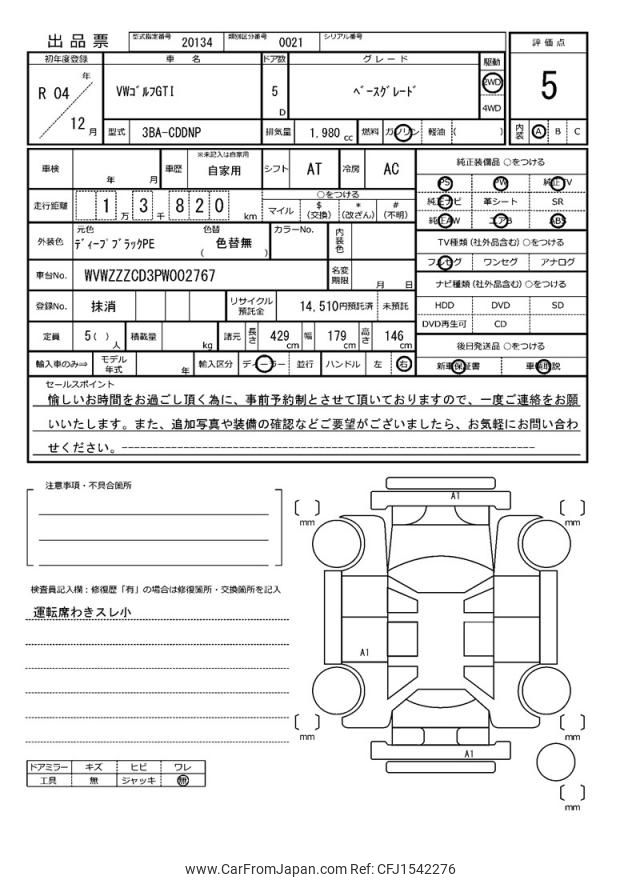 出品票 型式指定番号 20134 類別区分番号 0021 シリアル番号
評価点
5
内装 A B C
初年度登録 車名 ドア数 グレード 駆動
R 04 年 12 月
VWゴルフGTI 5 D ベースグレード 2WD 4WD
型式 3BA-CDDNP 排気量 1.980 cc 燃料 ガソリン 軽油 ( )
車検 年 月 車歴 ※未記入は自家用 自家用 シフト AT 冷房 AC
走行距離 1 万 3 千 8 2 0 km
○をつける
マイル $(交換) *(改ざん) #(不明)
外装色 元色 ディープブラックPE 色替 色替無 ( ) カラーNo. 内装色
車台No. WVWZZZCD3PW002767 名変期限 月 日
登録No. 抹消 リサイクル預託金 14,510円預託済 未預託
定員 5( )人 積載量 kg 諸元 長さ 429 cm 幅 179 cm 高さ 146 cm
輸入車のみ⇒ モデル年式 年 輸入区分 ディーラー 並行 ハンドル 左 右
純正装備品 ○をつける
PS PW 純正TV
純正ナビ 革シート SR
純正AW エアB ABS
TV種類 (社外品含む) ○をつける
フルセグ ワンセグ アナログ
ナビ種類 (社外品含む) ○をつける
HDD DVD SD
DVD再生可 CD
後日発送品 ○をつける
新車保証書 車輌取説
セールスポイント
愉しいお時間をお過ごし頂く為に、事前予約制とさせて頂いておりますので、一度ご連絡をお願
いいたします。また、追加写真や装備の確認などご要望がございましたら、お気軽にお問い合わ
せください。------------------------------------------------------------
注意事項・不具合箇所
検査員記入欄：修復歴「有」の場合は修復箇所・交換箇所を記入
運転席わきスレ小
ドアミラー キズ ヒビ ワレ
工具 無 ジャッキ 無
A1
[ ] mm
[ ] mm
A1
[ ] mm
[ ] mm
A1
[ ] mm
www.CarFromJapan.com Ref: CFJ1542276